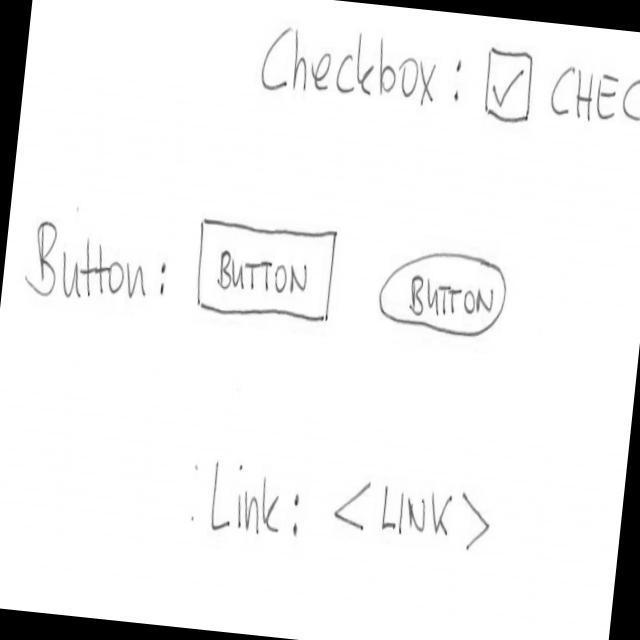 Checkbox: ☑ CHEC
Button: BUTTON BUTTON
Link: <LINK>